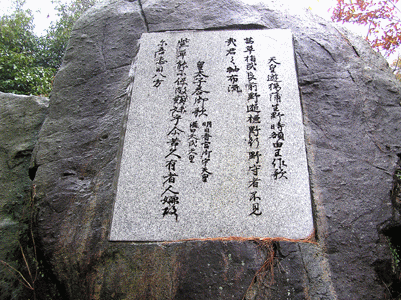 天皇遊獦蒲生野時額田王作歌
茜草指武良前野逝標野行野守者不見
哉君之袖布流
皇太子答御歌 明日香宮御宇天皇
紫草能尓保敝類妹乎尓苦久有者人嬬故
尓吾戀目八方